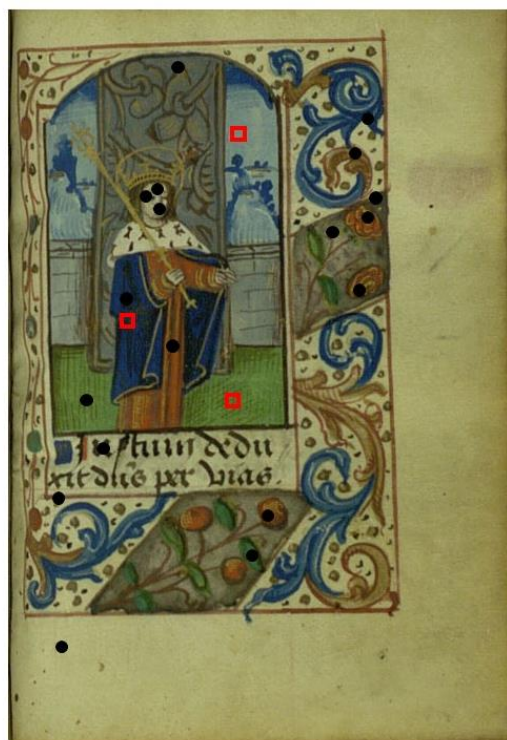 Iustum dedu
xit dn̄s per vias.